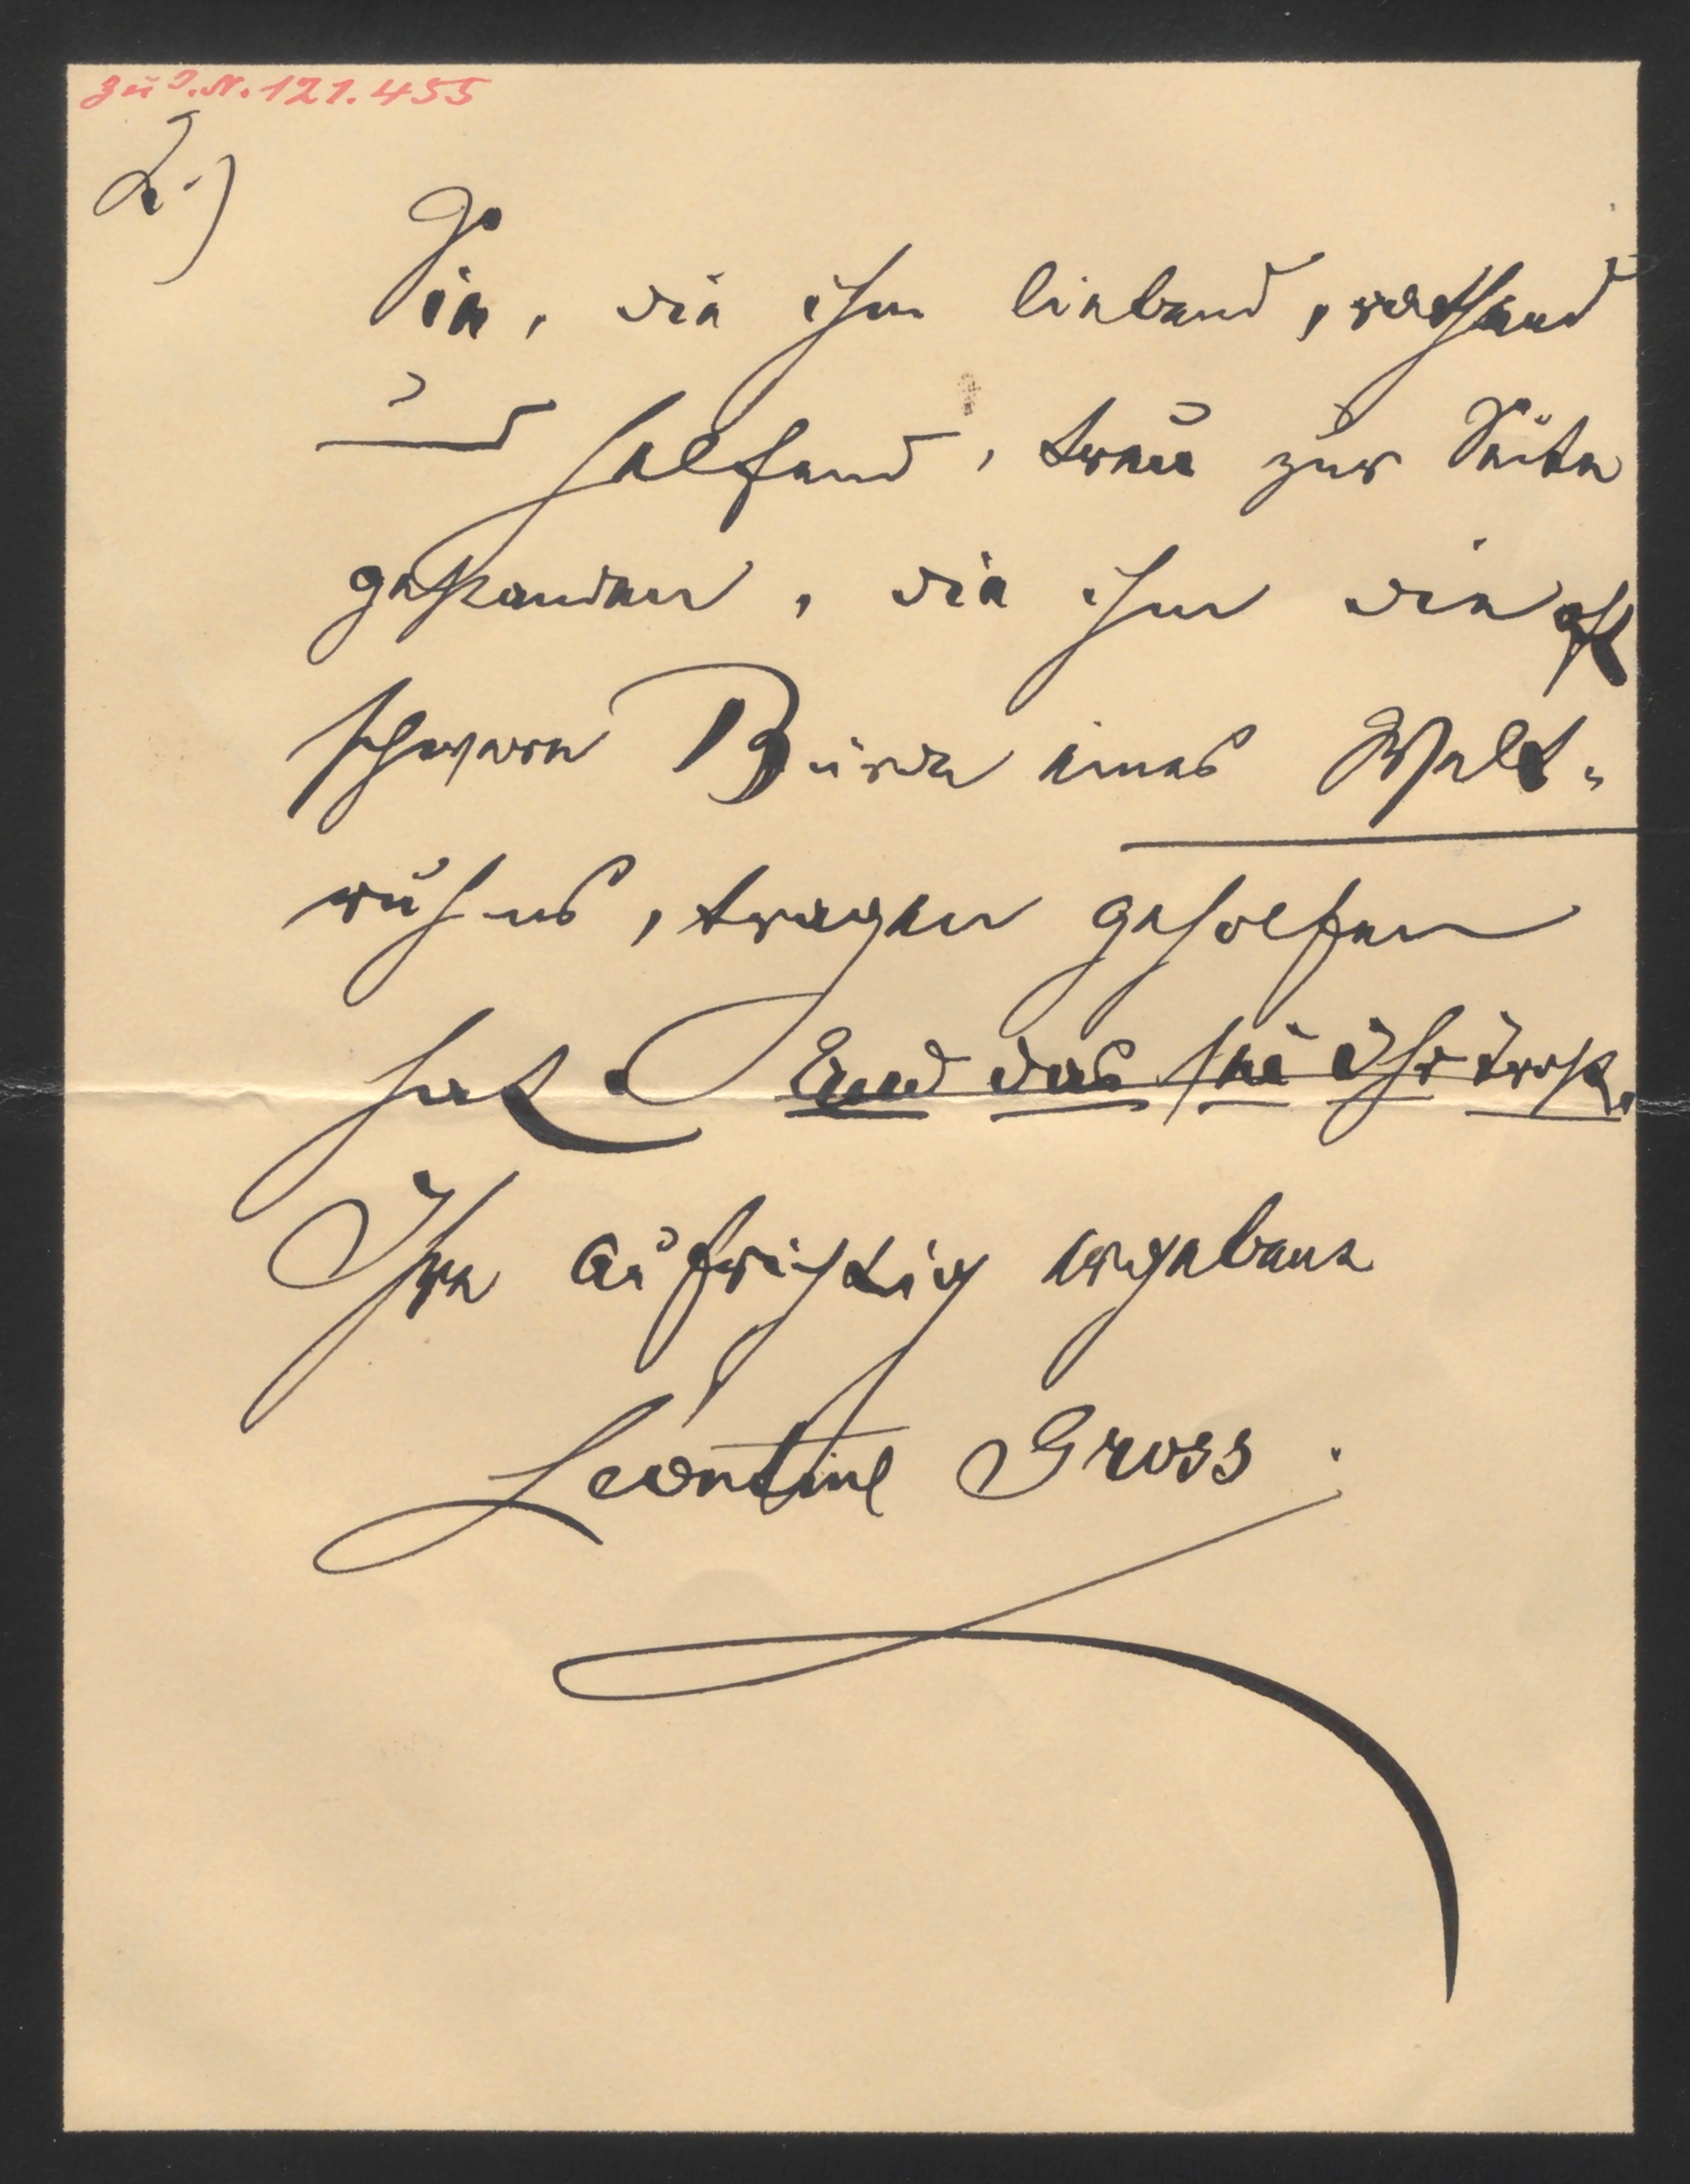 zu I.N. 121.455
2.)
Sie, die ihm liebend, rathend
und helfend, treu zur Seite
gestanden, die ihm die oft
schwere Bürde eines Welt-
ruhms, tragen geholfen
hat. Und das sei Ihr Trost.
Ihre aufrichtig ergebene
Leontine Gross.